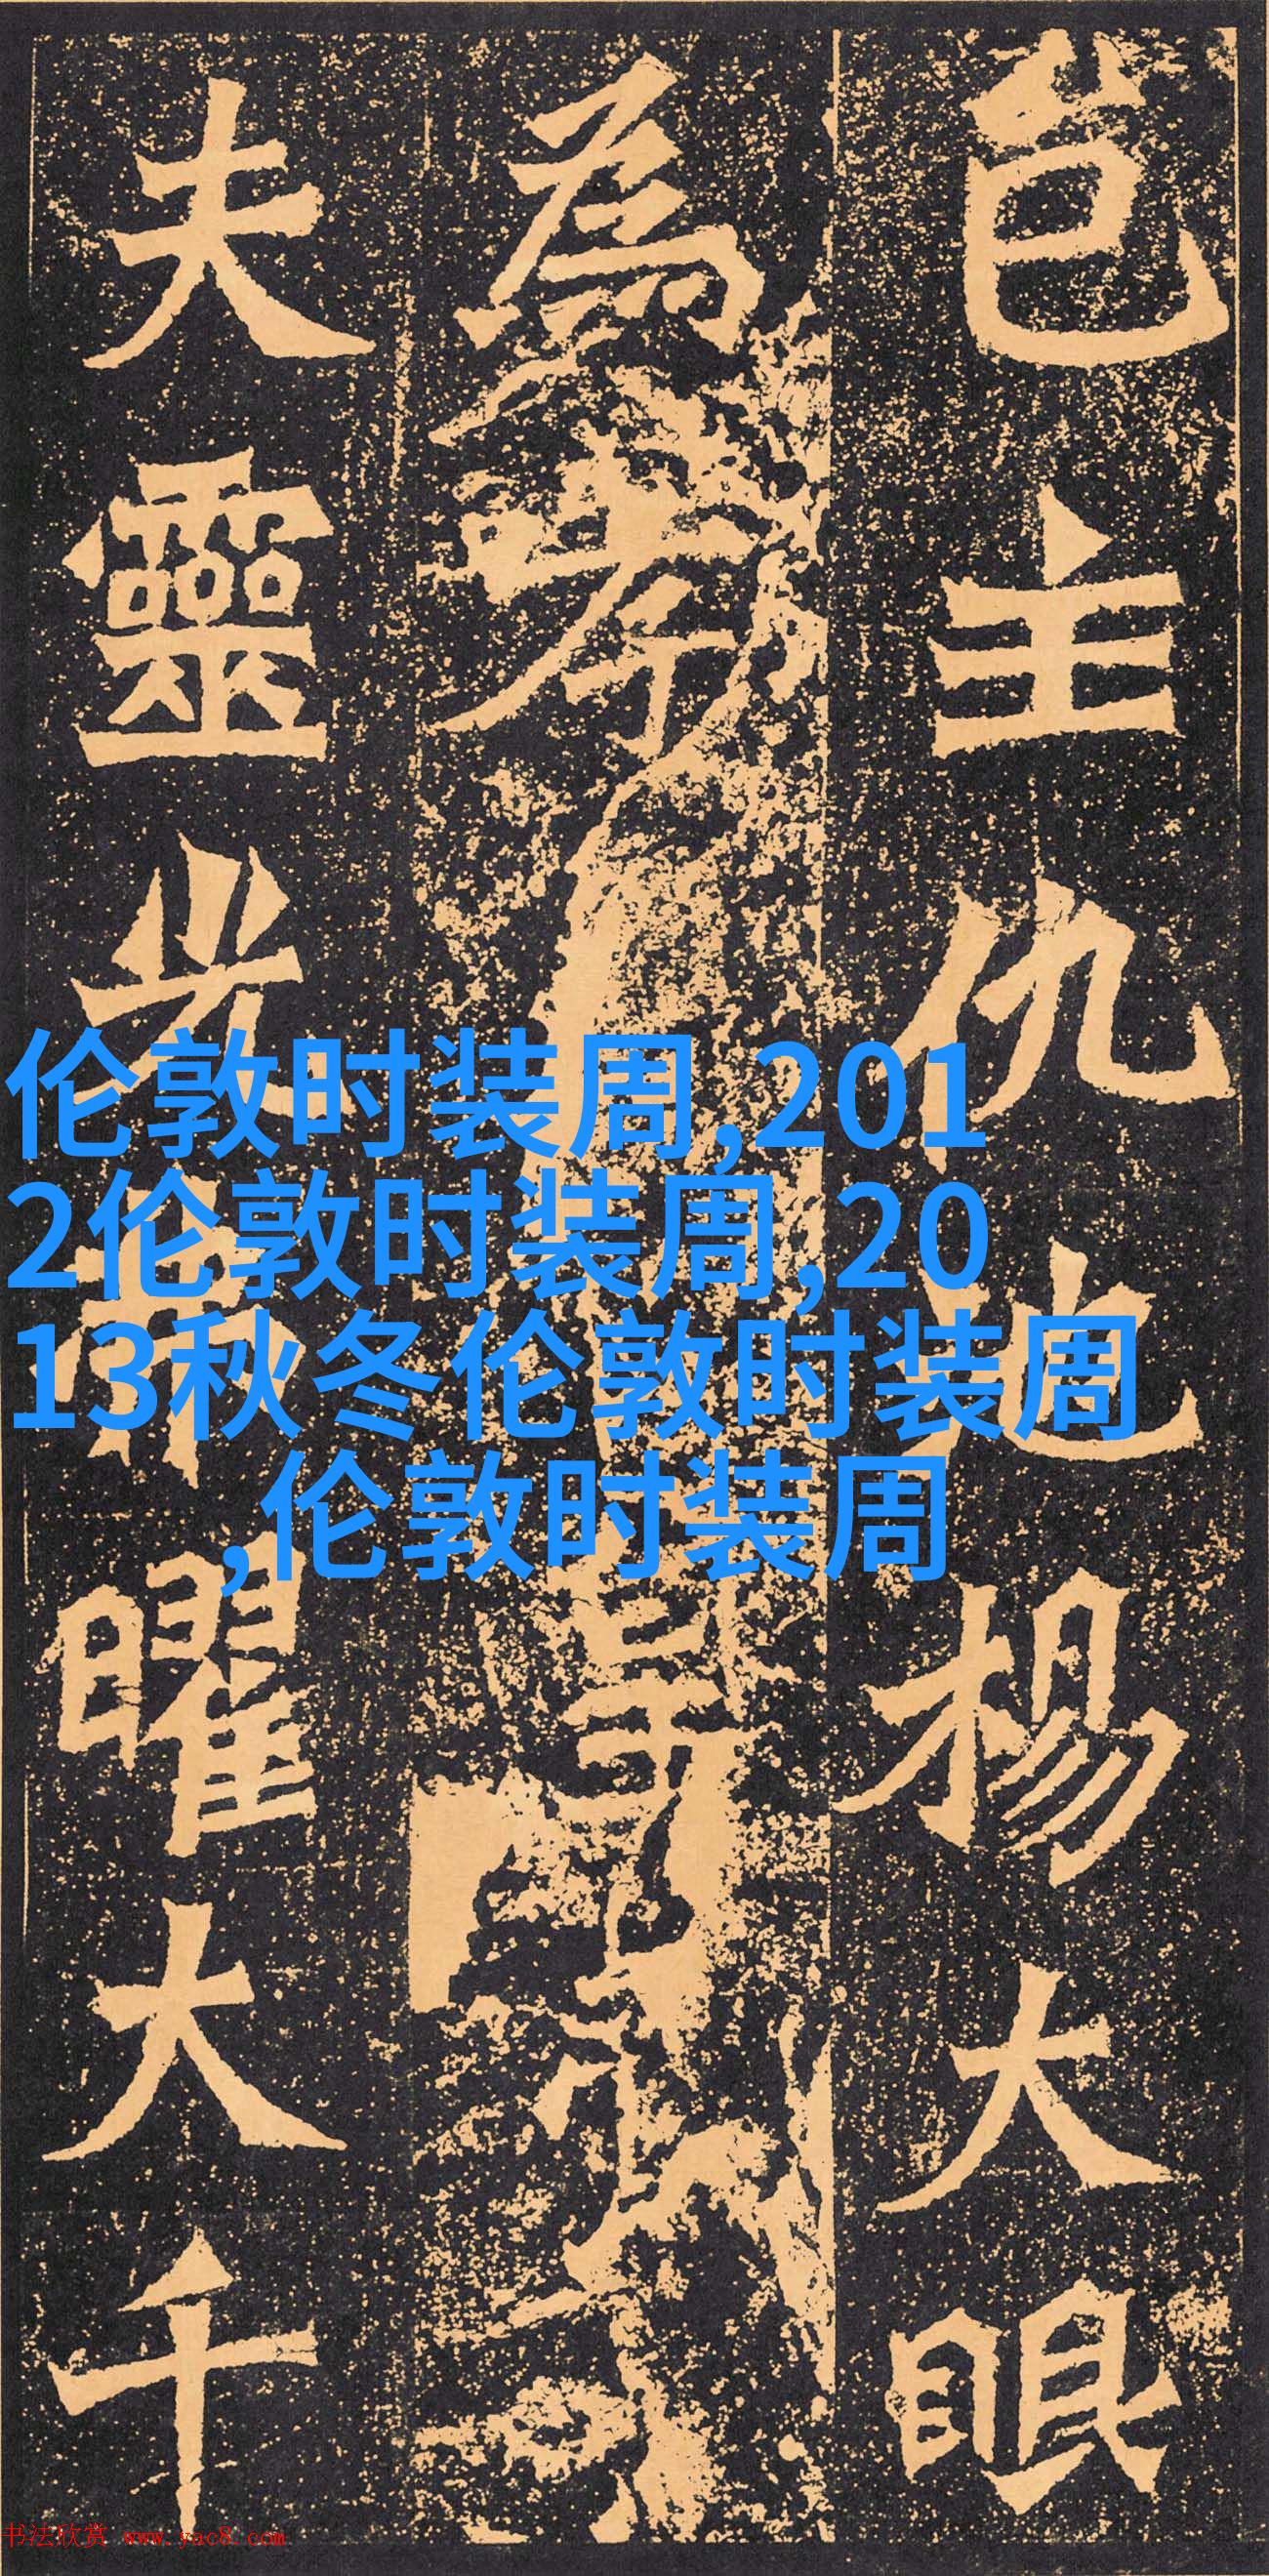 邑主仇池楊大眼
為孝
夫靈光弗曜大千
伦敦时装周,201
2伦敦时装周,20
13秋冬伦敦时装周
,伦敦时装周
书法欣赏 www.yac8.com